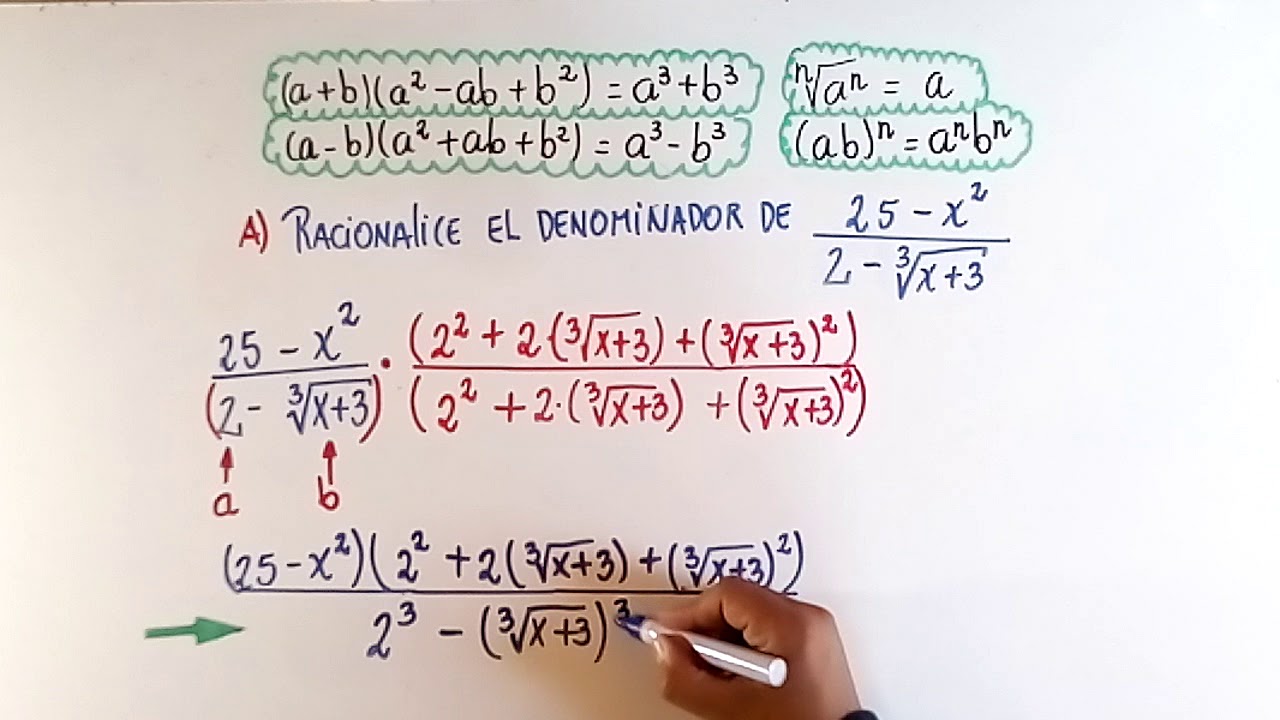 (a+b)(a² - ab + b²) = a³ + b³
ⁿ√aⁿ = a
(a-b)(a² + ab + b²) = a³ - b³
(ab)ⁿ = aⁿbⁿ
A) RACIONALICE EL DENOMINADOR DE (25 - x²)/(2 - ³√(x+3))
(25 - x²)/(2 - ³√(x+3)) · (2² + 2(³√(x+3)) + (³√(x+3))²)/(2² + 2·(³√(x+3)) + (³√(x+3))²)
a b
(25 - x²)(2² + 2(³√(x+3)) + (³√(x+3))²)
2³ - (³√(x+3))³